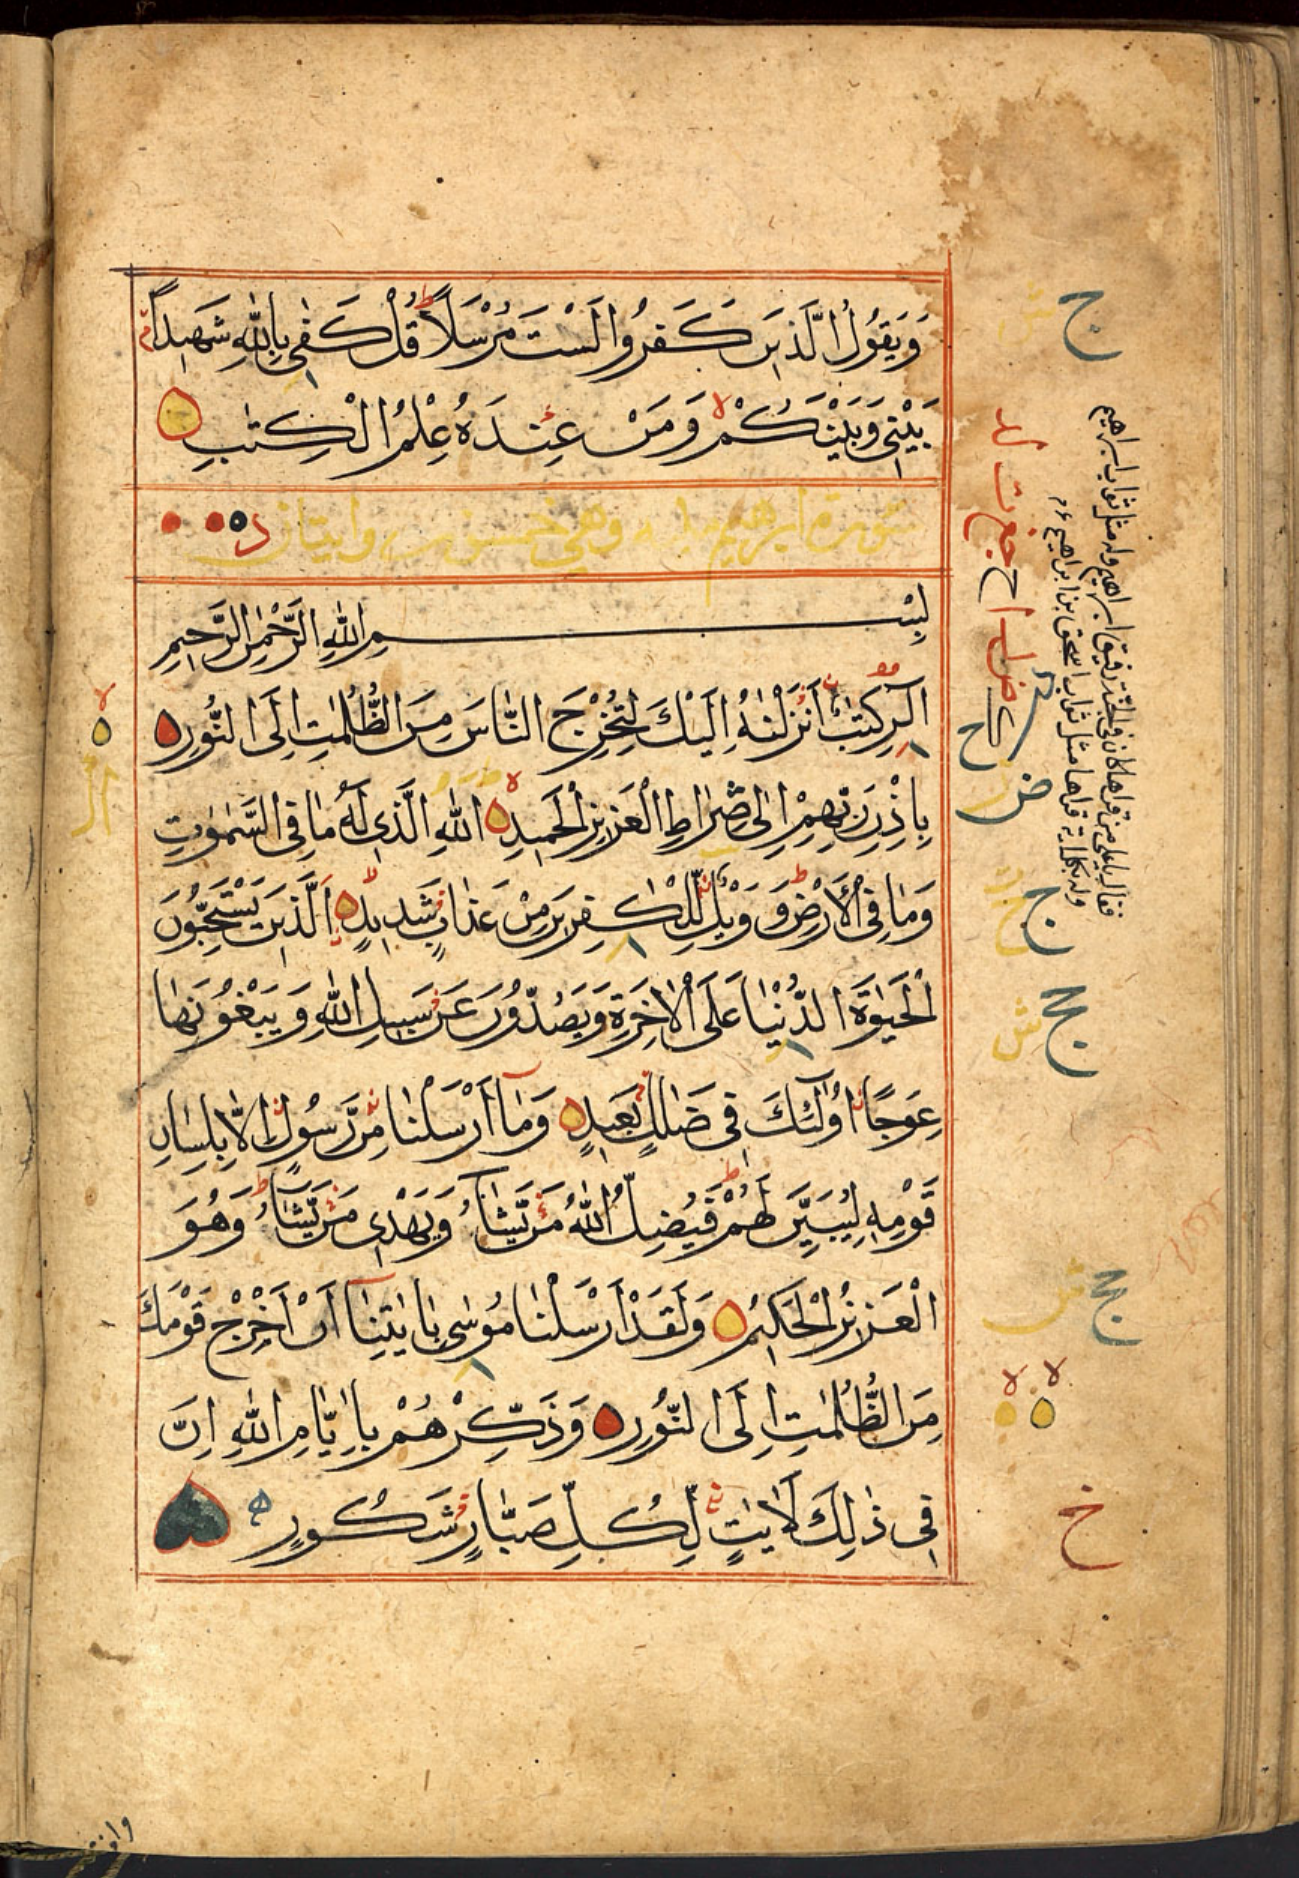 وَيَقُولُ الَّذِينَ كَفَرُوا لَسْتَ مُرْسَلًا قُلْ كَفٰى بِاللّٰهِ شَهِيدًا
بَيْنِي وَبَيْنَكُمْ وَمَنْ عِنْدَهُ عِلْمُ الْكِتٰبِ
سورة ابرهيم وهي خمسون وايتان
بِسْمِ اللّٰهِ الرَّحْمٰنِ الرَّحِيمِ
الٓرٰ كِتٰبٌ أَنْزَلْنٰهُ اِلَيْكَ لِتُخْرِجَ النَّاسَ مِنَ الظُّلُمٰتِ اِلَى النُّورِ
بِاِذْنِ رَبِّهِمْ اِلٰى صِرَاطِ الْعَزِيزِ الْحَمِيدِ اللّٰهِ الَّذِي لَهُ مَا فِي السَّمٰوٰتِ
وَمَا فِي الْاَرْضِ وَوَيْلٌ لِّلْكٰفِرِينَ مِنْ عَذَابٍ شَدِيدٍ اَلَّذِينَ يَسْتَحِبُّونَ
الْحَيٰوةَ الدُّنْيَا عَلَى الْاٰخِرَةِ وَيَصُدُّونَ عَنْ سَبِيلِ اللّٰهِ وَيَبْغُونَهَا
عِوَجًا اُولٰٓئِكَ فِي ضَلٰلٍ بَعِيدٍ وَمَآ اَرْسَلْنَا مِنْ رَّسُولٍ اِلَّا بِلِسَانِ
قَوْمِهِ لِيُبَيِّنَ لَهُمْ فَيُضِلُّ اللّٰهُ مَنْ يَّشَآءُ وَيَهْدِي مَنْ يَّشَآءُ وَهُوَ
الْعَزِيزُ الْحَكِيمُ وَلَقَدْ اَرْسَلْنَا مُوسٰى بِاٰيٰتِنَآ اَنْ اَخْرِجْ قَوْمَكَ
مِنَ الظُّلُمٰتِ اِلَى النُّورِ وَذَكِّرْهُمْ بِاَيَّامِ اللّٰهِ اِنَّ
فِي ذٰلِكَ لَاٰيٰتٍ لِّكُلِّ صَبَّارٍ شَكُورٍ